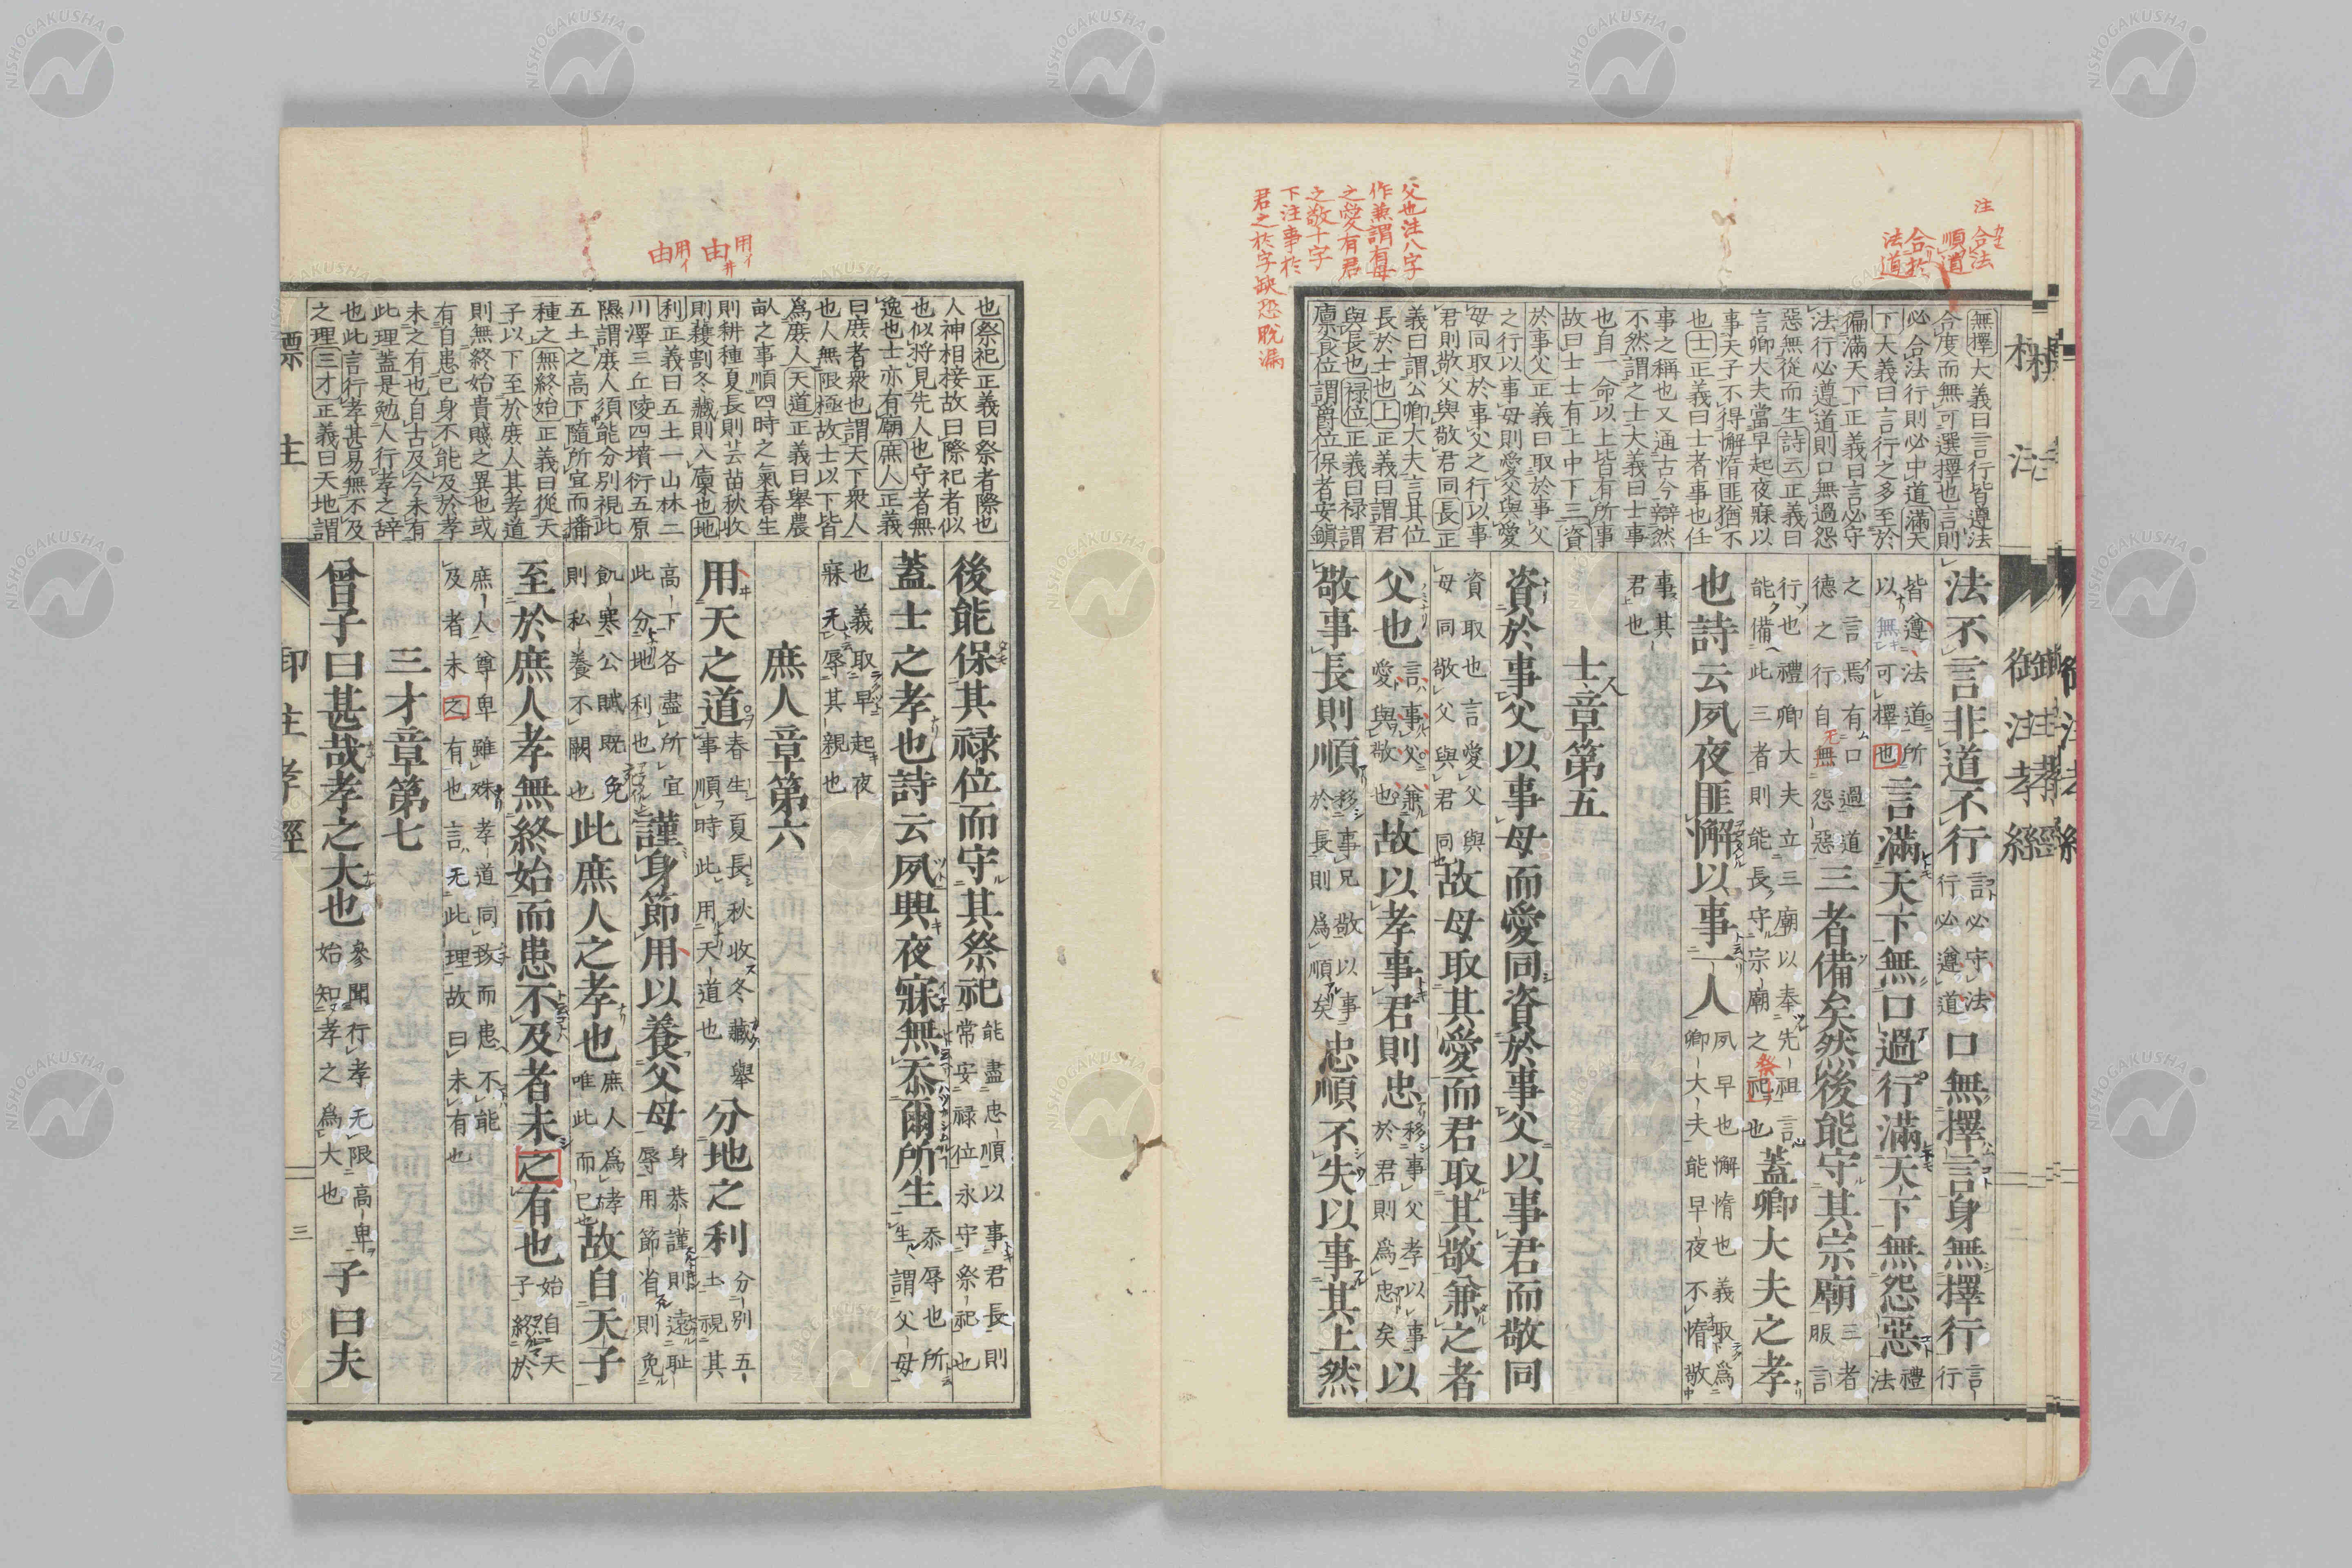 注
合法
順道
合於
法道
父也注八字
作兼謂有母
之愛有君
之敬十字
下注事於
君之於字缺恐脱漏
無擇大義曰言行皆遵法
合度而無可選擇也言則
必合法行則必中道滿天
下大義曰言行之多至於
徧滿天下正義曰言必守
法行必遵道則口無過怨
惡無從而生詩云正義曰
言卿大夫當早起夜寐以
事天子不得懈惰匪猶不
也士正義曰士者事也任
事之稱也又通古今辯然
不然謂之士大義曰士事
也自一命以上皆有所事
故曰士士有上中下三資
於事父正義曰取於事父
之行以事母則愛父與愛
母同取於事父之行以事
君則敬父與敬君同長正
義曰謂公卿大夫言其位
長於士也上正義曰謂君
與長也禄位正義曰禄謂
廩食位謂爵位保者安鎮
法不言非道不行言必守法行必遵道口無擇言身無擇行言行
皆遵法道所以無可擇也言滿天下無口過行滿天下無怨惡禮法
之言焉有口過道德之行自無怨惡三者備矣然後能守其宗廟三者服言
行也禮卿大夫立三廟以奉先祖言能備此三者則能長守宗廟之祀也蓋卿大夫之孝
也詩云夙夜匪懈以事一人夙早也懈惰也義取爲卿大夫能早夜不惰敬
事其君也
士章第五
資於事父以事母而愛同資於事父以事君而敬同
資取也言愛父與母同敬父與君同故母取其愛而君取其敬兼之者
父也言事父兼愛與敬也故以孝事君則忠移事父孝以事於君則爲忠矣以
敬事長則順移事兄敬以事於長則爲順矣忠順不失以事其上然
標注
御注孝經
也祭祀正義曰祭者際也
人神相接故曰際祀者似
也似将見先人也守者無
逸也士亦有廟庶人正義
曰庶者衆也謂天下衆人
也人無限極故士以下皆
爲庶人天道正義曰舉農
畝之事順四時之氣春生
則耕種夏長則芸苗秋收
則穫割冬藏則入廩也地
利正義曰五土一山林二
川澤三丘陵四墳衍五原
隰謂庶人須能分別視此
五土之高下隨所宜而播
種之無終始正義曰從天
子以下至於庶人其孝道
則無終始貴賤之異也或
有自患己身不能及於孝
未之有也自古及今未有
此理蓋是勉人行孝之辞
也此言行孝甚易無不及
之理三才正義曰天地謂
後能保其禄位而守其祭祀能盡忠順以事君長則常安禄位永守祭祀也
蓋士之孝也詩云夙興夜寐無忝爾所生忝辱也所生謂父母
也義取早起夜寐无辱其親也
庶人章第六
用天之道春生夏長秋收冬藏舉事順時此用天道也分地之利分別五土視其
高下各盡所宜此分地利也謹身節用以養父母身恭謹則遠耻辱用節省則免
飢寒公賦既免則私養不闕也此庶人之孝也庶人爲孝唯此而已故自天子
至於庶人孝無終始而患不及者未之有也始自天子終於
庶人尊卑雖殊孝道同致而患不能及者未之有也言无此理故曰未有也
三才章第七
曾子曰甚哉孝之大也參聞行孝无限高卑始知孝之爲大也子曰夫
三